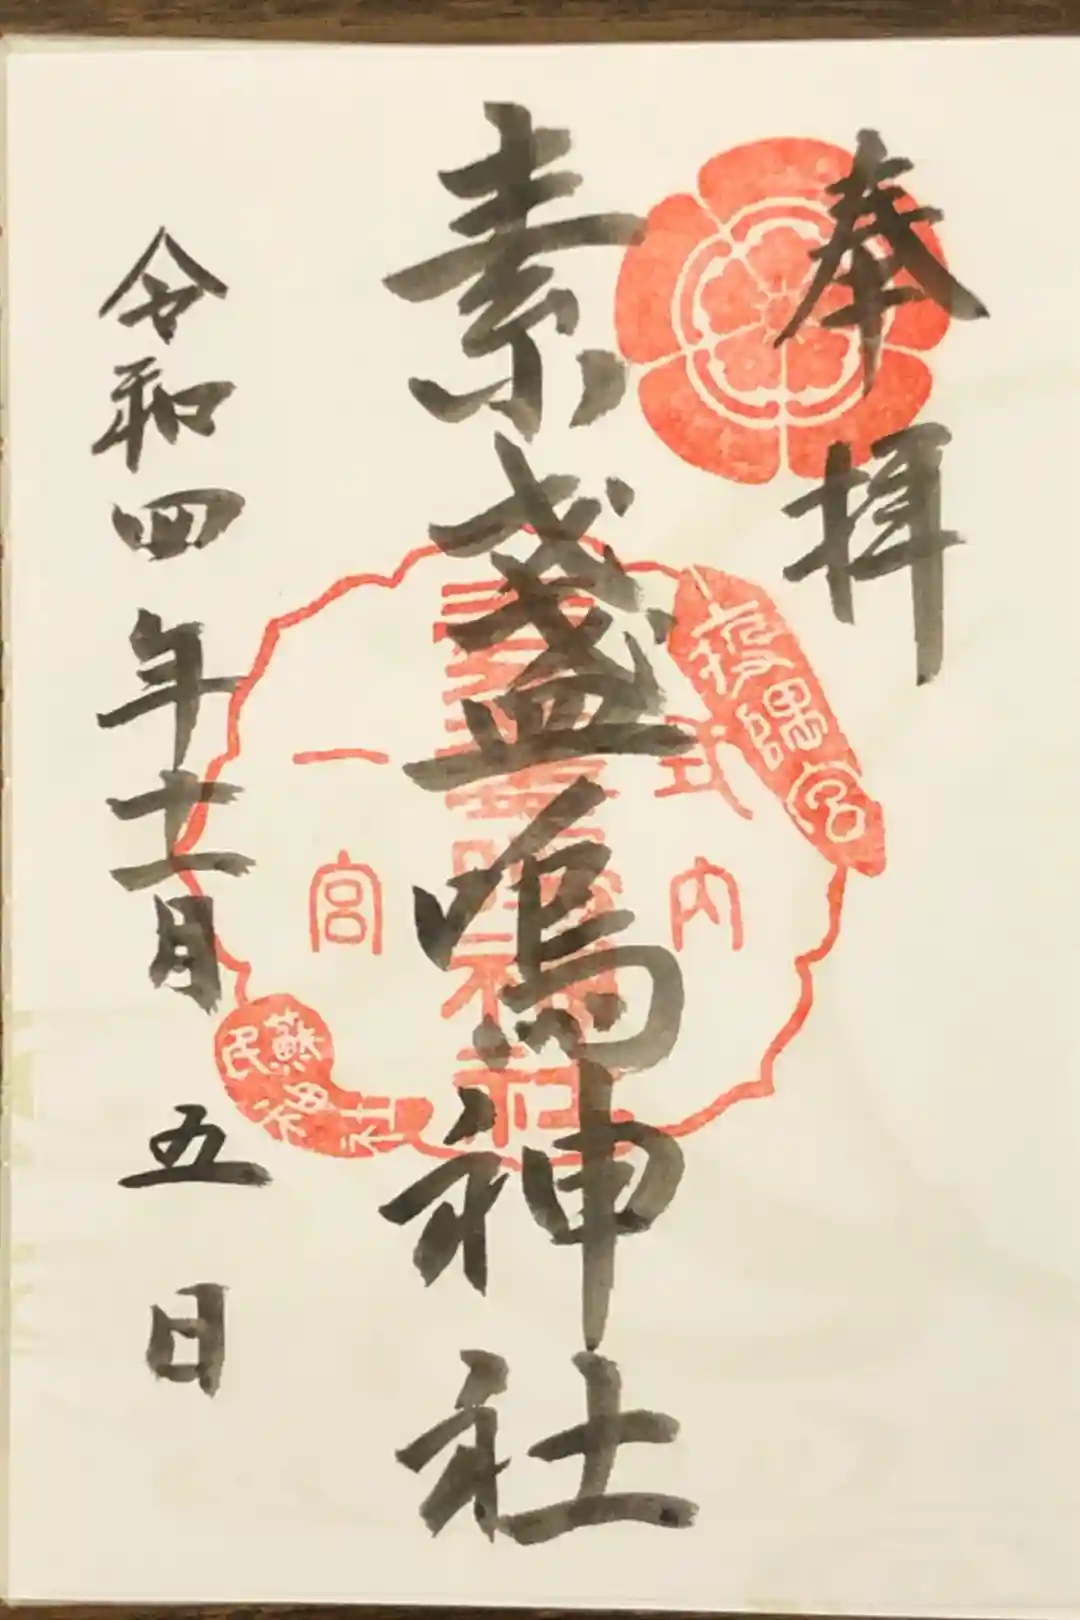 奉拝
素盞嗚神社
令和四年十一月五日
式内
一宮
蘇民神社